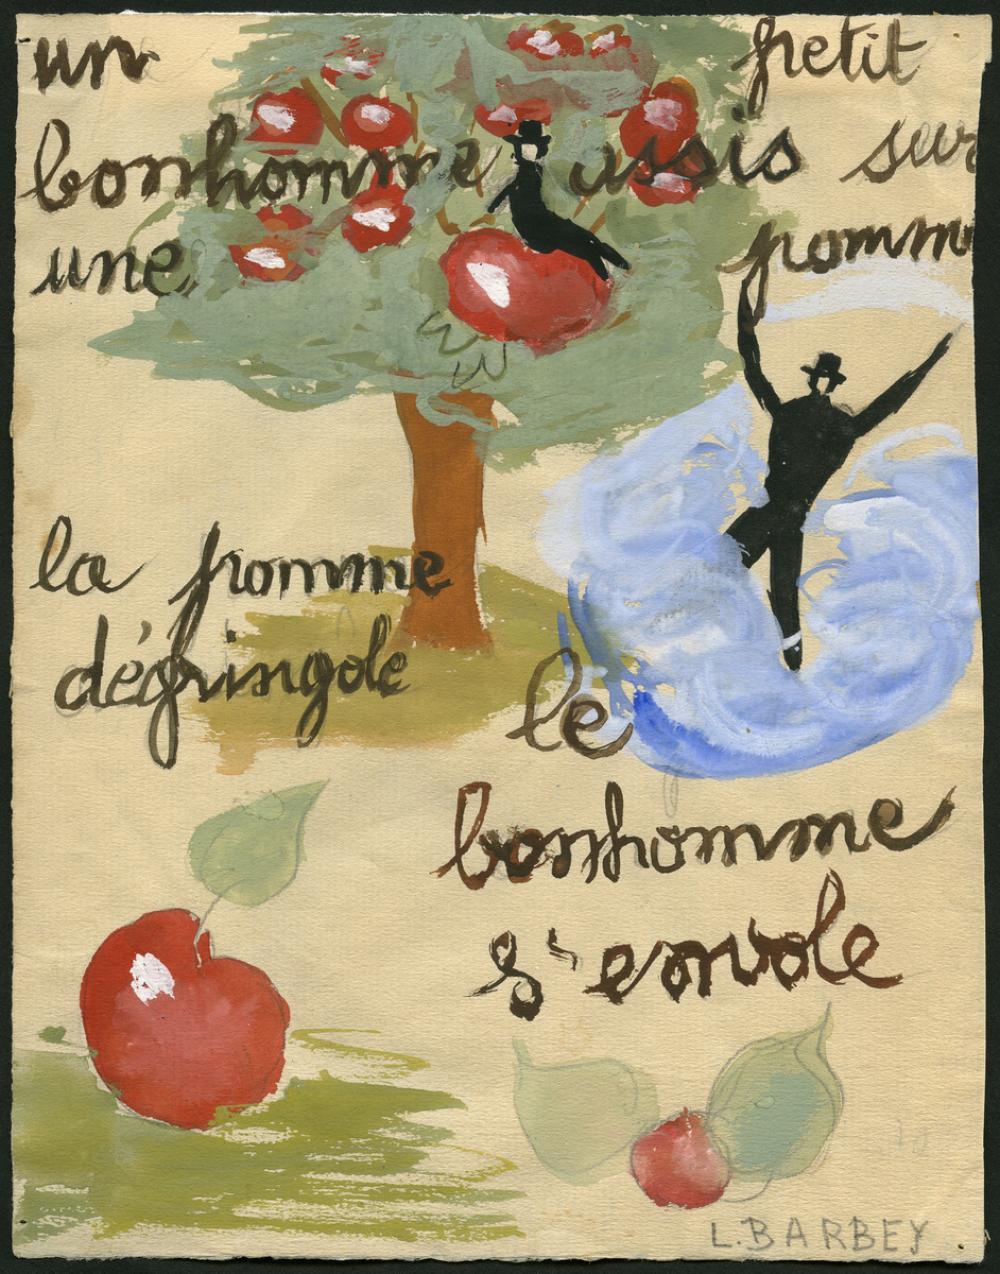 un petit
bonhomme assis sur
une pomm
la pomme
dégringole
le
bonhomme
s'envole
L. BARBEY